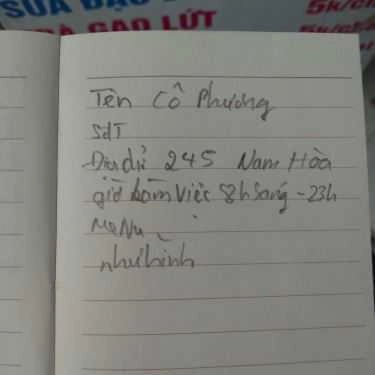 SỮA ĐẬU
RÀ GẠO LỨT
5k/c
5k/c
Tên Cô Phương
SdT
Địa chỉ 245 Nam Hòa
giờ làm việc 8h Sáng - 23h
MeNu
như hình